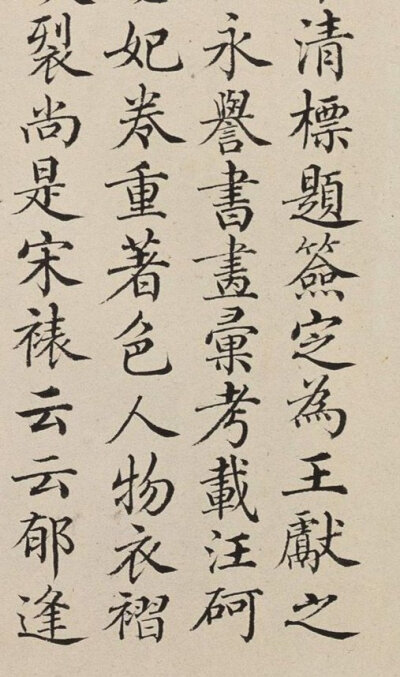 清標題簽定為王獻之
永譽書畫彙考載汪砢
妃卷重著色人物衣褶
裂尚是宋裱云云郁逢